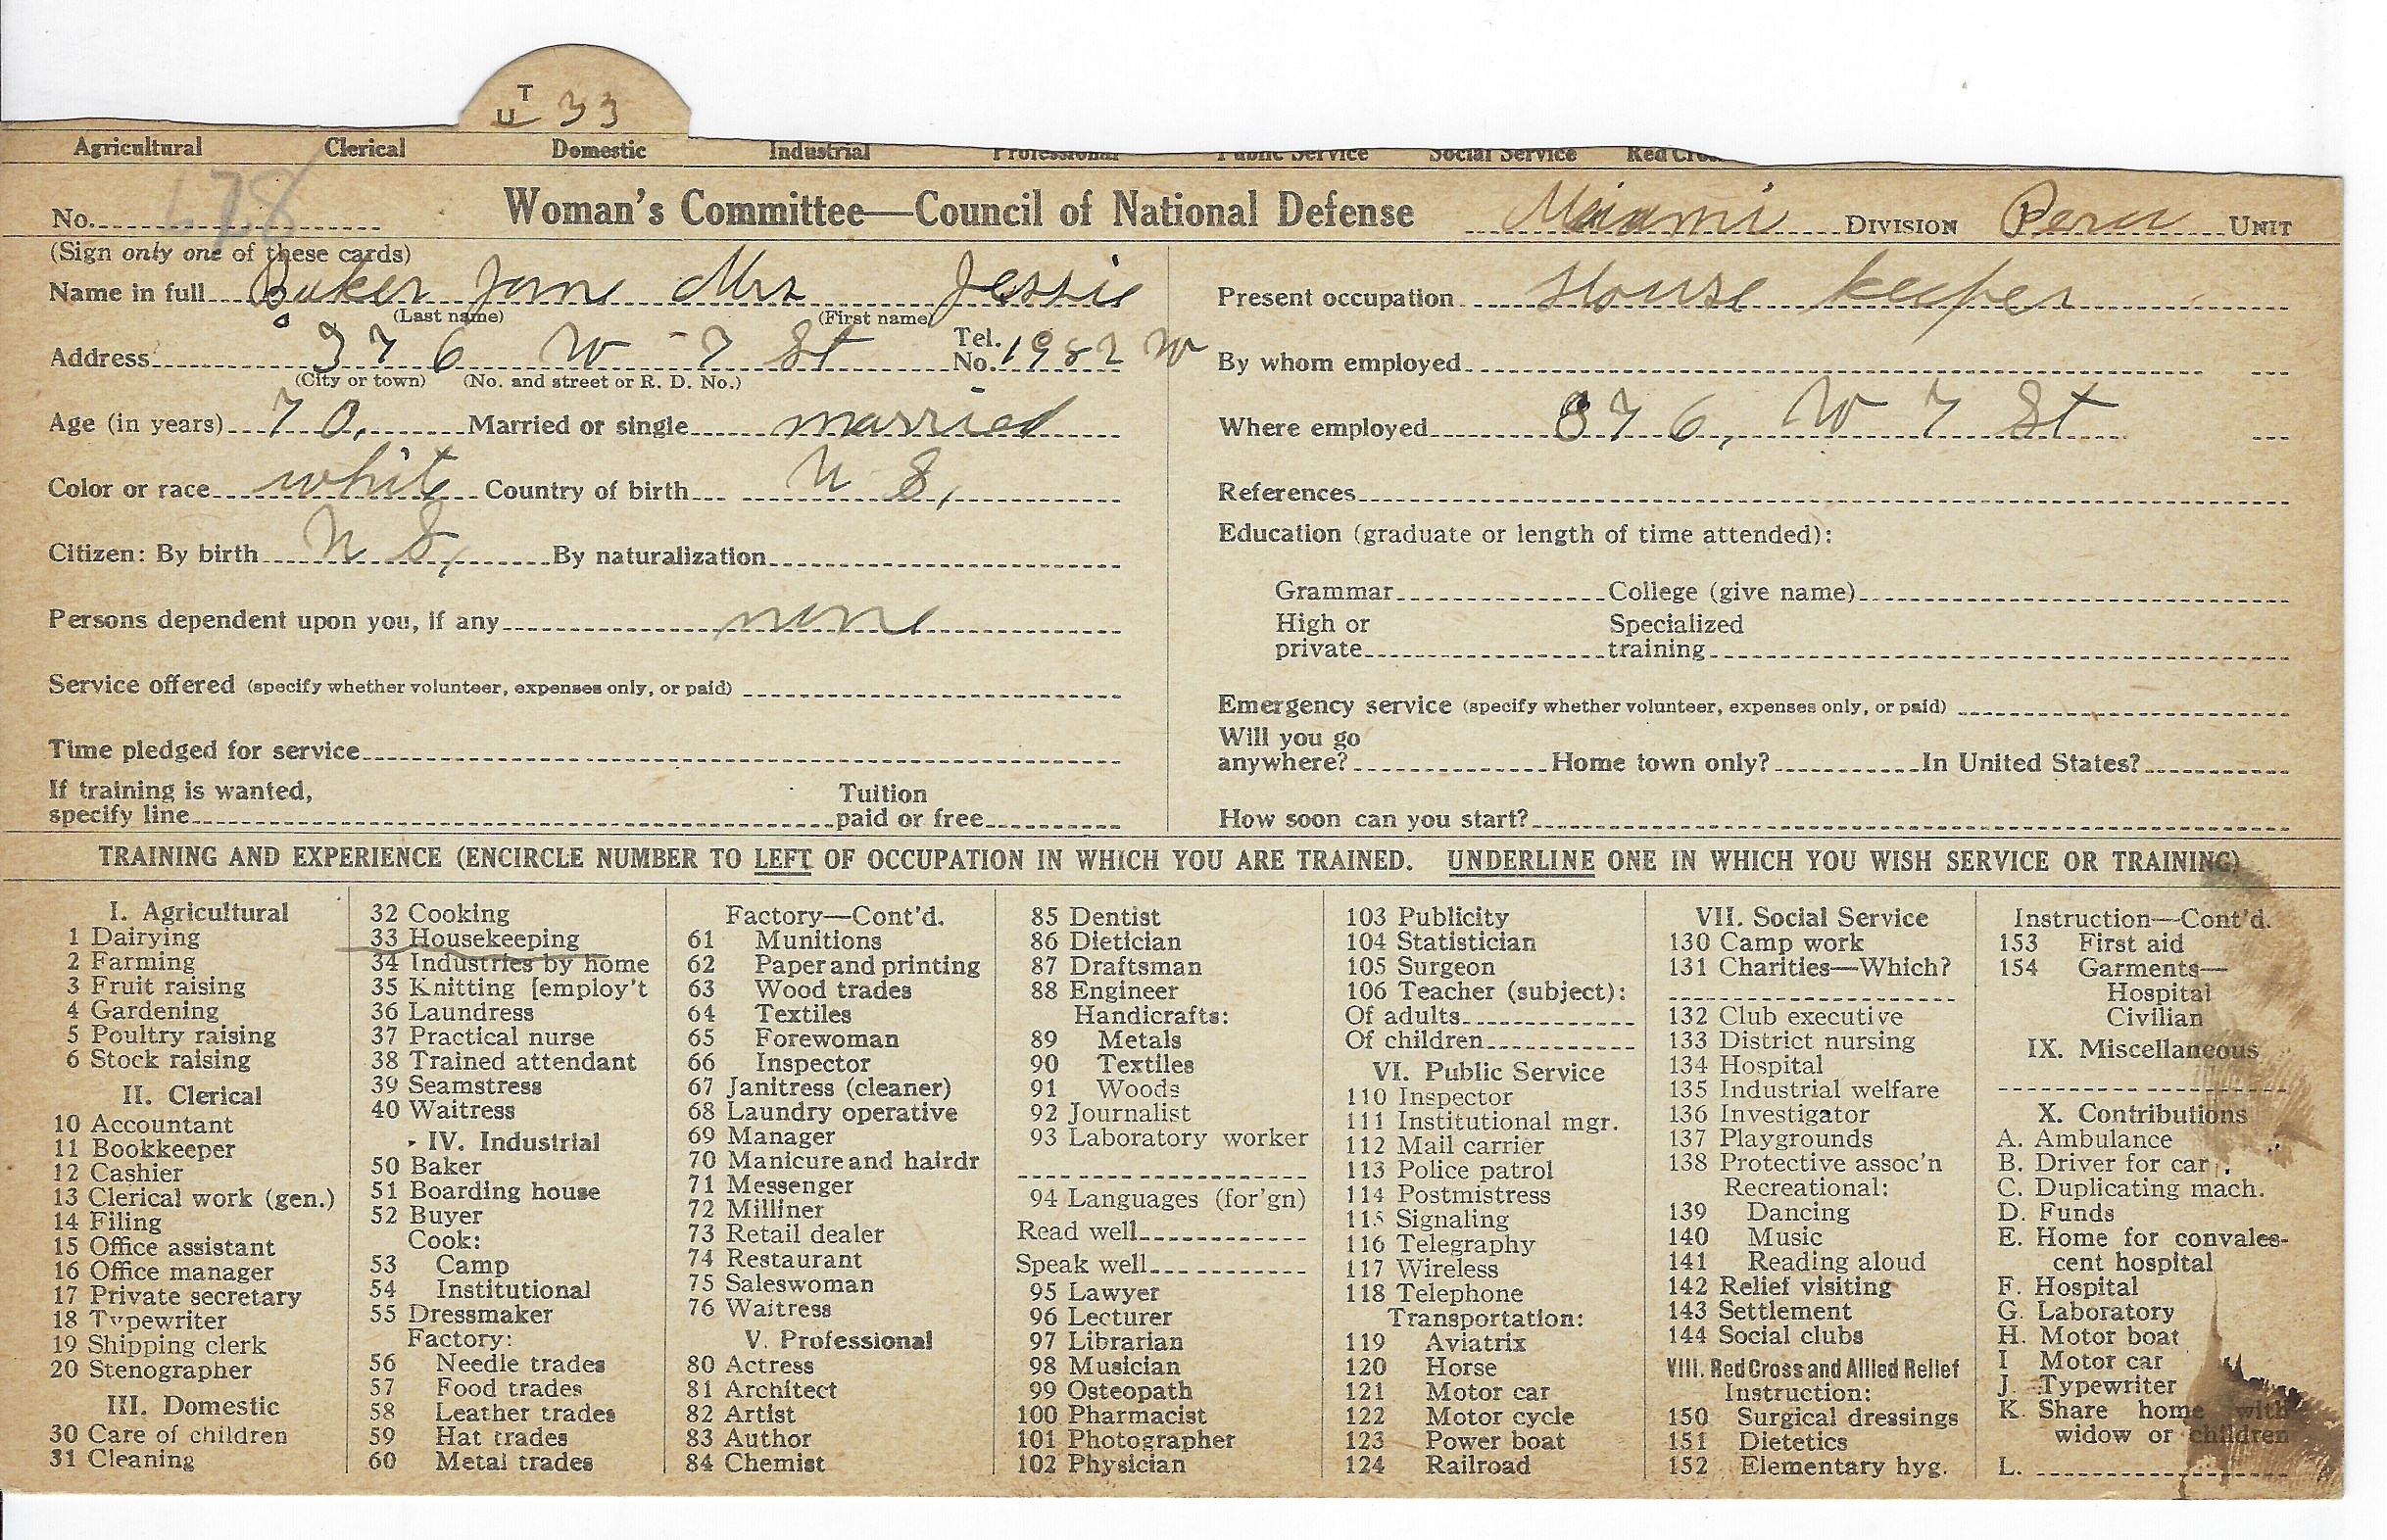 T
U 33
Agricultural Clerical Domestic Industrial Professional Public Service Social Service Red Cross
No. 678 Woman's Committee—Council of National Defense Miami DIVISION Peru UNIT
(Sign only one of these cards)
Name in full Baker Jane Mrs Jessie
(Last name) (First name)
Address 376 W 7 St Tel. No. 1982 W
(City or town) (No. and street or R. D. No.)
Age (in years) 70, Married or single married
Color or race whit Country of birth U S,
Citizen: By birth U S, By naturalization
Persons dependent upon you, if any none
Service offered (specify whether volunteer, expenses only, or paid)
Time pledged for service
If training is wanted,
specify line Tuition paid or free
Present occupation House keeper
By whom employed
Where employed 376, W 7 St
References
Education (graduate or length of time attended):
Grammar College (give name)
High or private Specialized training
Emergency service (specify whether volunteer, expenses only, or paid)
Will you go
anywhere? Home town only? In United States?
How soon can you start?
TRAINING AND EXPERIENCE (ENCIRCLE NUMBER TO LEFT OF OCCUPATION IN WHICH YOU ARE TRAINED. UNDERLINE ONE IN WHICH YOU WISH SERVICE OR TRAINING)
I. Agricultural
1 Dairying
2 Farming
3 Fruit raising
4 Gardening
5 Poultry raising
6 Stock raising
II. Clerical
10 Accountant
11 Bookkeeper
12 Cashier
13 Clerical work (gen.)
14 Filing
15 Office assistant
16 Office manager
17 Private secretary
18 Typewriter
19 Shipping clerk
20 Stenographer
III. Domestic
30 Care of children
31 Cleaning
32 Cooking
33 Housekeeping
34 Industries by home
35 Knitting [employ't
36 Laundress
37 Practical nurse
38 Trained attendant
39 Seamstress
40 Waitress
IV. Industrial
50 Baker
51 Boarding house
52 Buyer
Cook:
53 Camp
54 Institutional
55 Dressmaker
Factory:
56 Needle trades
57 Food trades
58 Leather trades
59 Hat trades
60 Metal trades
Factory—Cont'd.
61 Munitions
62 Paper and printing
63 Wood trades
64 Textiles
65 Forewoman
66 Inspector
67 Janitress (cleaner)
68 Laundry operative
69 Manager
70 Manicure and hairdr
71 Messenger
72 Milliner
73 Retail dealer
74 Restaurant
75 Saleswoman
76 Waitress
V. Professional
80 Actress
81 Architect
82 Artist
83 Author
84 Chemist
85 Dentist
86 Dietician
87 Draftsman
88 Engineer
Handicrafts:
89 Metals
90 Textiles
91 Woods
92 Journalist
93 Laboratory worker
94 Languages (for'gn)
Read well
Speak well
95 Lawyer
96 Lecturer
97 Librarian
98 Musician
99 Osteopath
100 Pharmacist
101 Photographer
102 Physician
103 Publicity
104 Statistician
105 Surgeon
106 Teacher (subject):
Of adults
Of children
VI. Public Service
110 Inspector
111 Institutional mgr.
112 Mail carrier
113 Police patrol
114 Postmistress
115 Signaling
116 Telegraphy
117 Wireless
118 Telephone
Transportation:
119 Aviatrix
120 Horse
121 Motor car
122 Motor cycle
123 Power boat
124 Railroad
VII. Social Service
130 Camp work
131 Charities—Which?
132 Club executive
133 District nursing
134 Hospital
135 Industrial welfare
136 Investigator
137 Playgrounds
138 Protective assoc'n
Recreational:
139 Dancing
140 Music
141 Reading aloud
142 Relief visiting
143 Settlement
144 Social clubs
VIII. Red Cross and Allied Relief
Instruction:
150 Surgical dressings
151 Dietetics
152 Elementary hyg.
Instruction—Cont'd.
153 First aid
154 Garments—
Hospital
Civilian
IX. Miscellaneous
X. Contributions
A. Ambulance
B. Driver for car
C. Duplicating mach.
D. Funds
E. Home for convales-
cent hospital
F. Hospital
G. Laboratory
H. Motor boat
I Motor car
J. Typewriter
K. Share home with
widow or children
L.